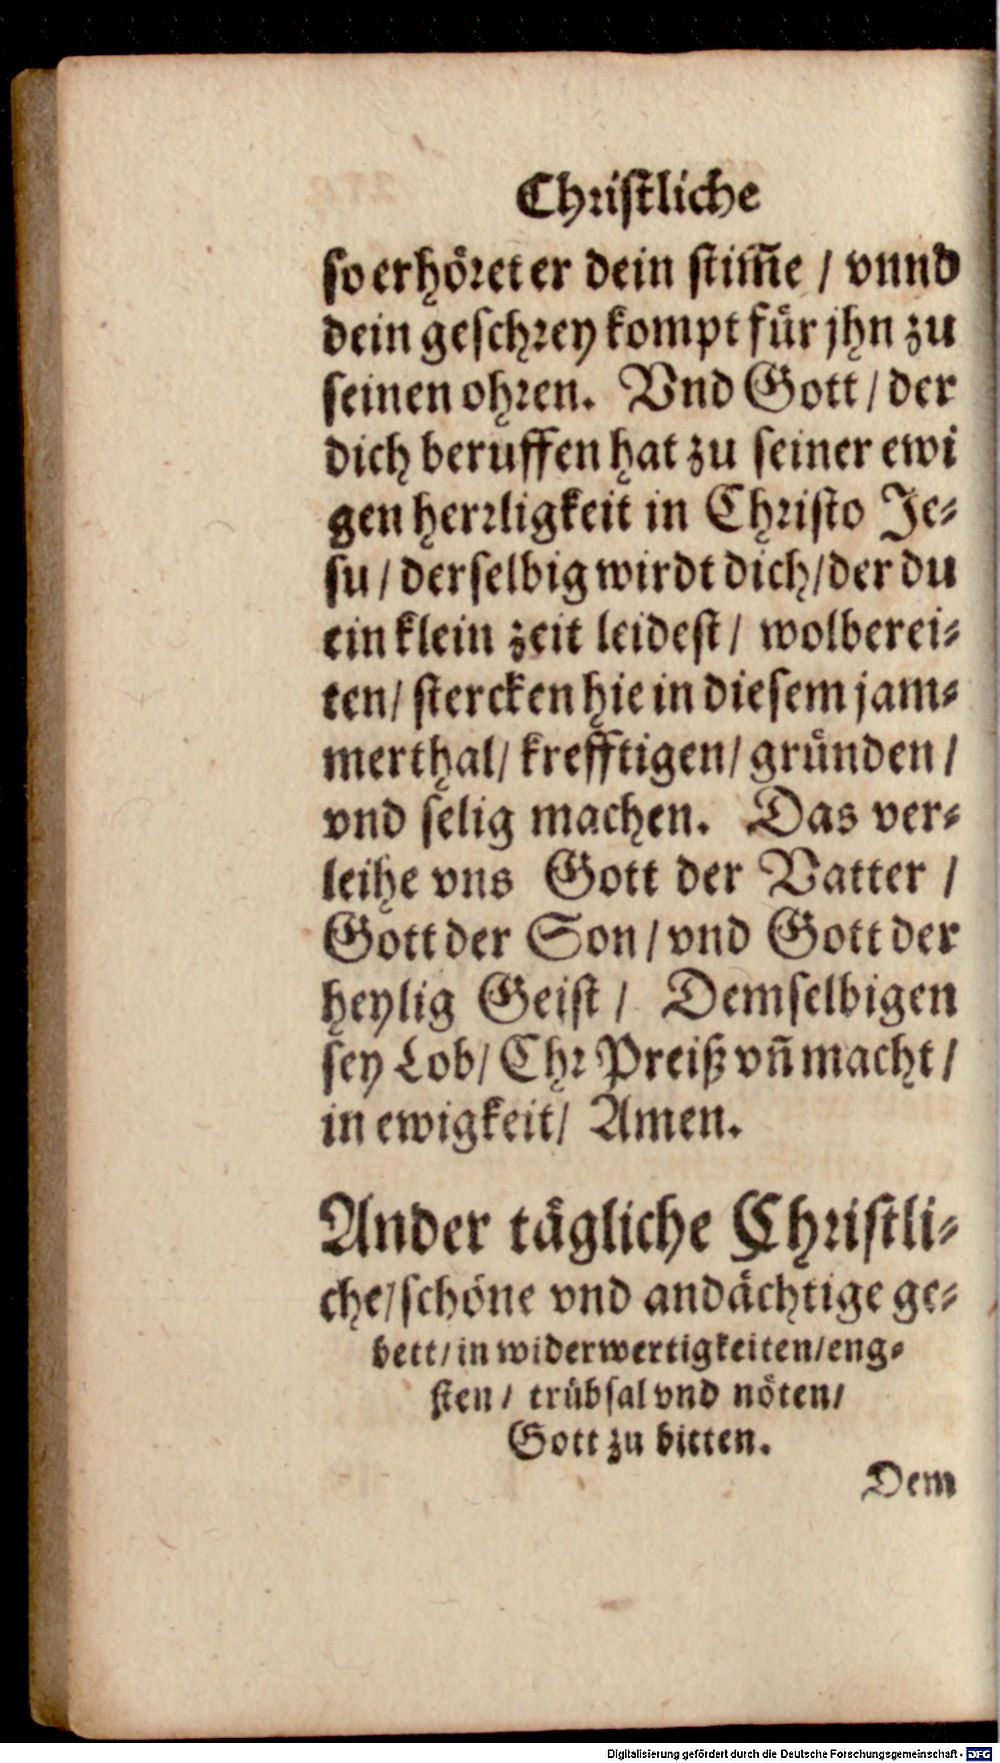 Christliche
so erhöret er dein stim̃e / vnnd
dein geschrey kompt für jhn zu
seinen ohren. Vnd Gott / der
dich beruffen hat zu seiner ewi
gen herrligkeit in Christo Je⸗
su / derselbig wirdt dich / der du
ein klein zeit leidest / wolberei⸗
ten / stercken hie in diesem jam⸗
merthal / krefftigen / gründen /
vnd selig machen. Das ver⸗
leihe vns Gott der Vatter /
Gott der Son / vnd Gott der
heylig Geist / Demselbigen
sey Lob / Ehr Preiß vñ macht /
in ewigkeit / Amen.
Ander tägliche Christli⸗
che / schöne vnd andächtige ge⸗
bett / in widerwertigkeiten / eng⸗
sten / trübsal vnd nöten /
Gott zu bitten.
Dem
Digitalisierung gefördert durch die Deutsche Forschungsgemeinschaft - DFG